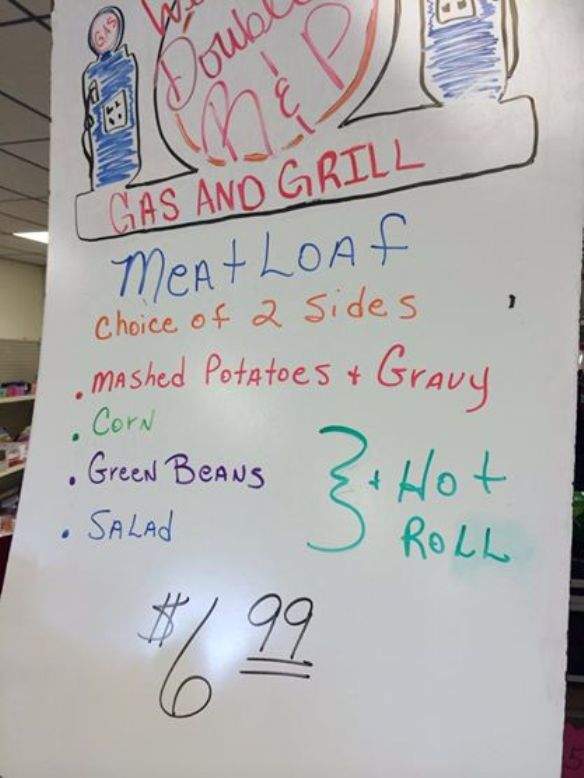 GAS
Double
R & P
GAS AND GRILL
MEAtLOAf
Choice of 2 Sides
. MAShed PotAtoes + GRAvy
. CorN
. GreeN BeANS
. SALAd
} + Hot
RoLL
$6 99